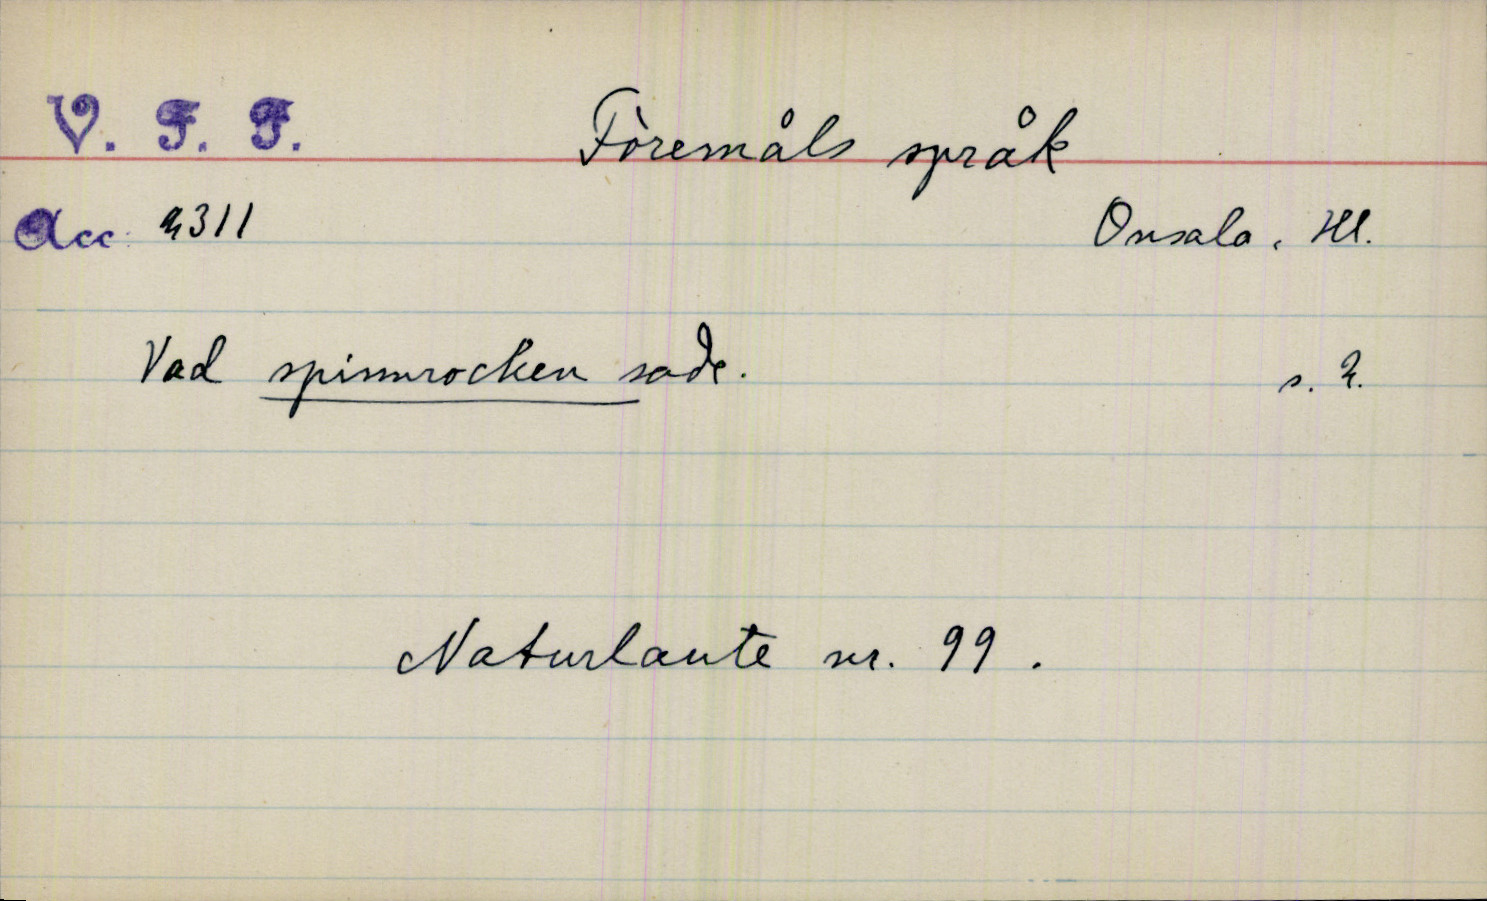 V. F. F. Föremåls språk
Acc. 2311 Onsala, Hl.
Vad spinnrocken sade. s. 2.
Naturlaute nr. 99.